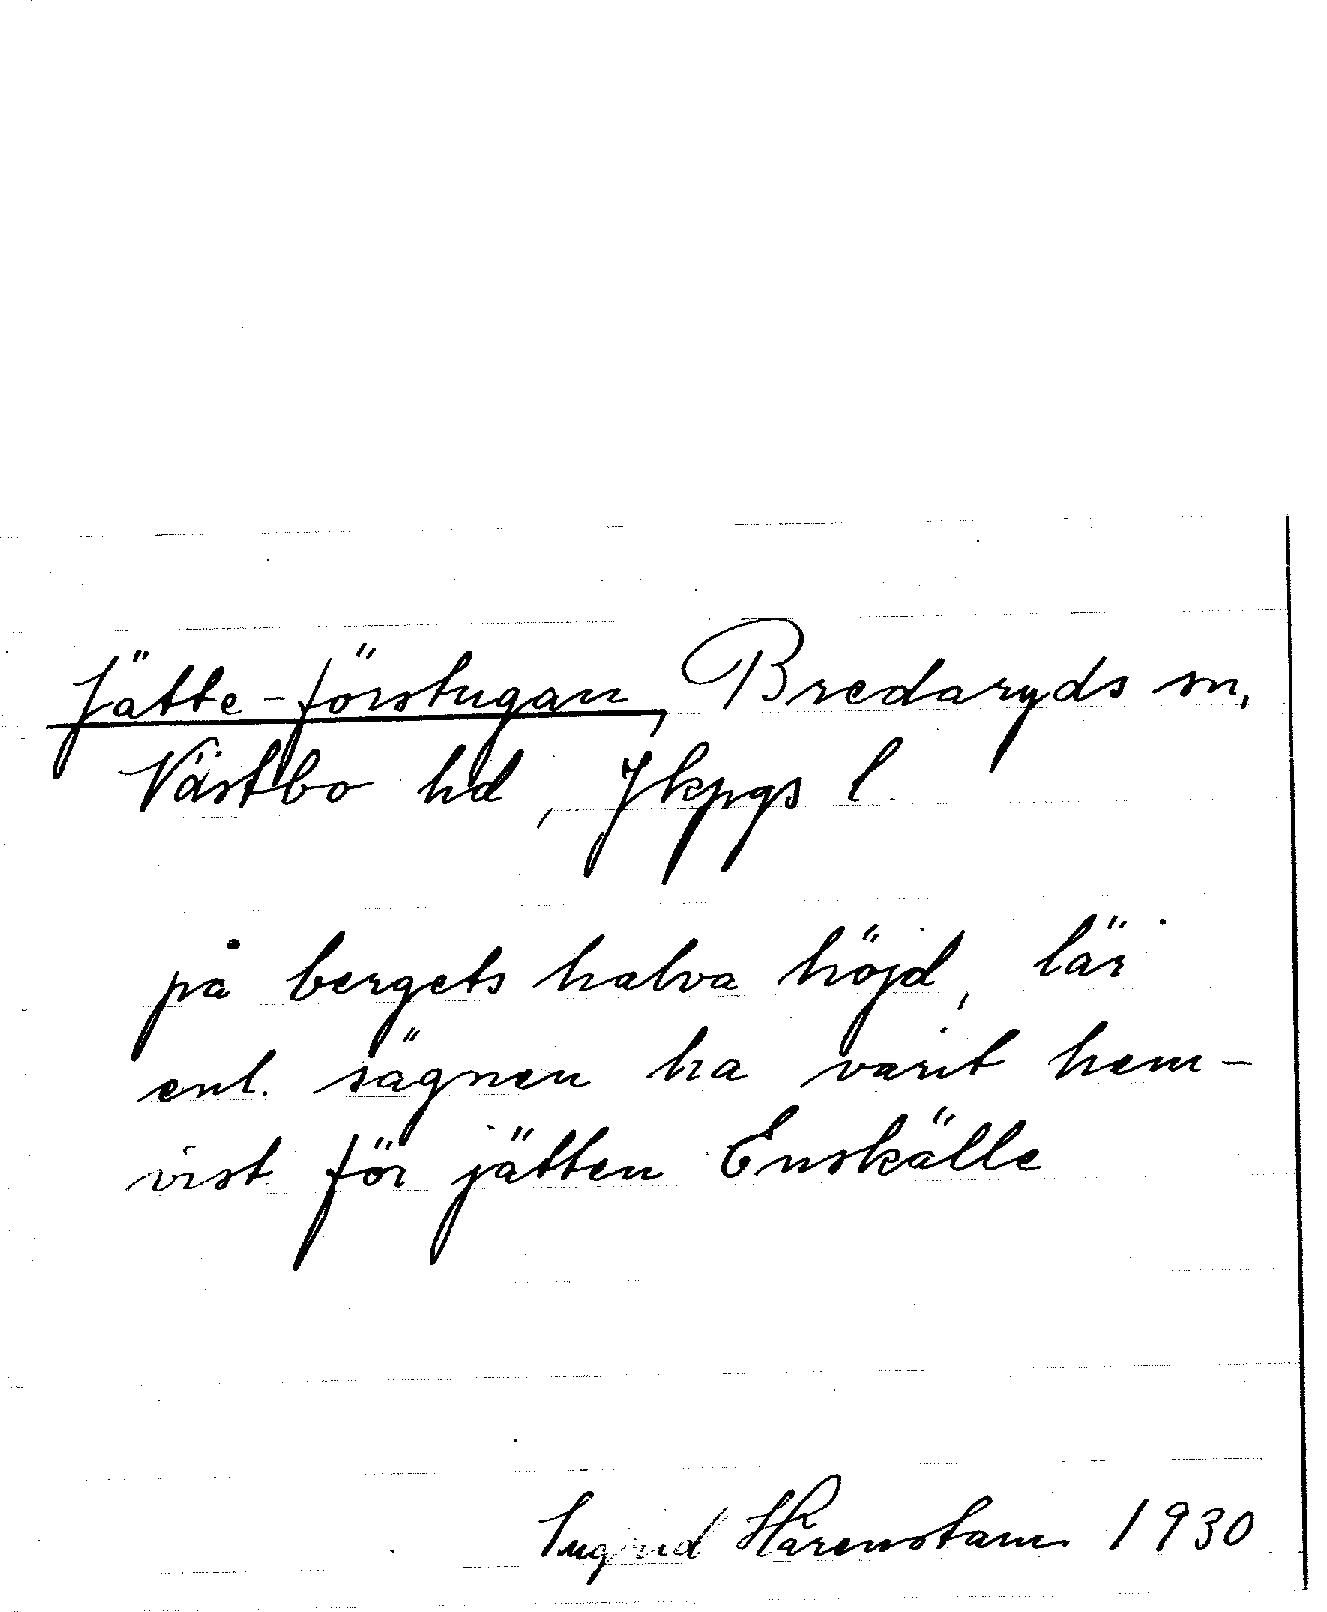 Jätte-förstugan, Bredaryds sn,
Västbo hd, Jkpgs l
på bergets halva höjd, lär
enl. sägnen ha varit hem-
vist för jätten Enskälle
Ingrid Hårenstam 1930